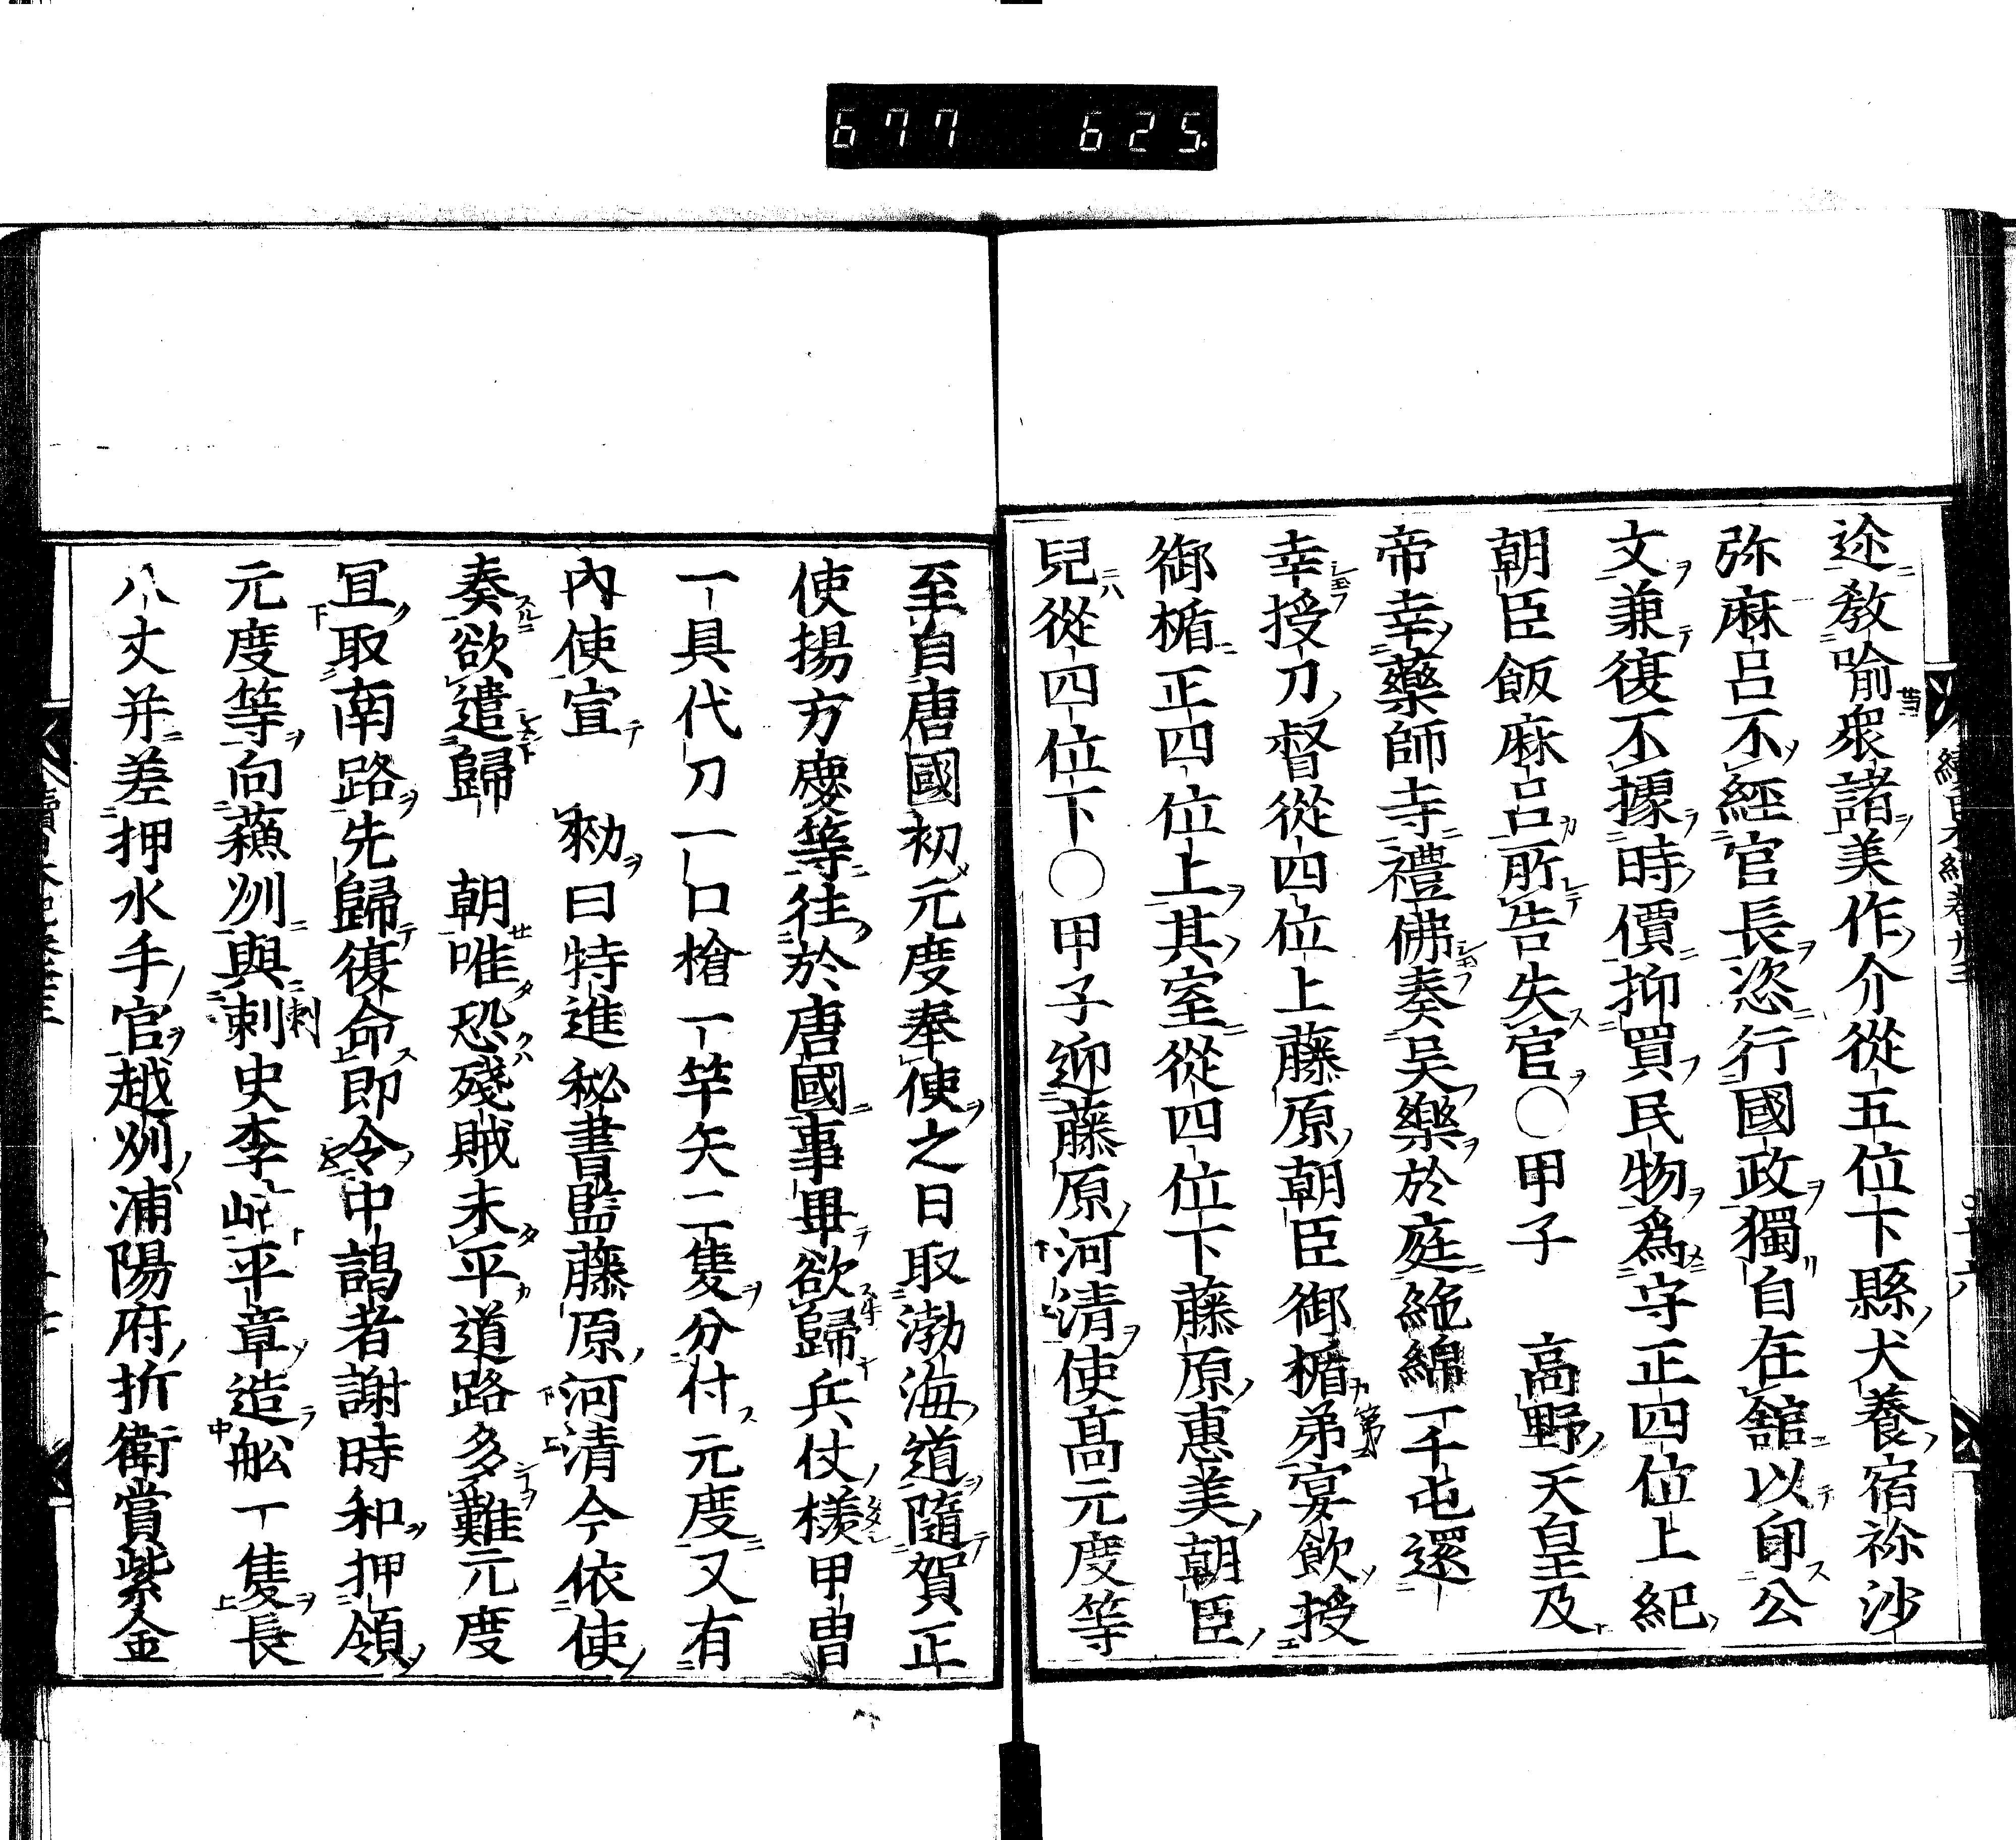 677 625
迩教喩衆諸美作介從五位下縣犬養宿祢沙
弥麻呂不經官長恣行國政獨自在舘以印公
文兼復不據時價抑買民物爲守正四位上紀
朝臣飯麻呂所告失官〇甲子 高野天皇及
帝幸藥師寺禮佛奏吴樂於庭絁綿一千屯還
幸授刀督從四位上藤原朝臣御楯弟宴飲授
御楯正四位上其室從四位下藤原惠美朝臣
兒從四位下〇甲子迎藤原河清使髙元度等
至自唐國初元度奉使之日取渤海道隨賀正
使揚方慶等往於唐國事畢欲歸兵仗樣甲曹
一具代刀一口槍一竿矢二隻分付元度又有
內使宣 勑曰特進秘書監藤原河清今依使
奏欲遣歸 朝唯恐殘賊未平道路多難元度
冝取南路先歸復命即令中謁者謝時和押領
元度等向蘓州與刺史李岵平章造舩一隻長
八丈并差押水手官越州浦陽府折衝賞紫金